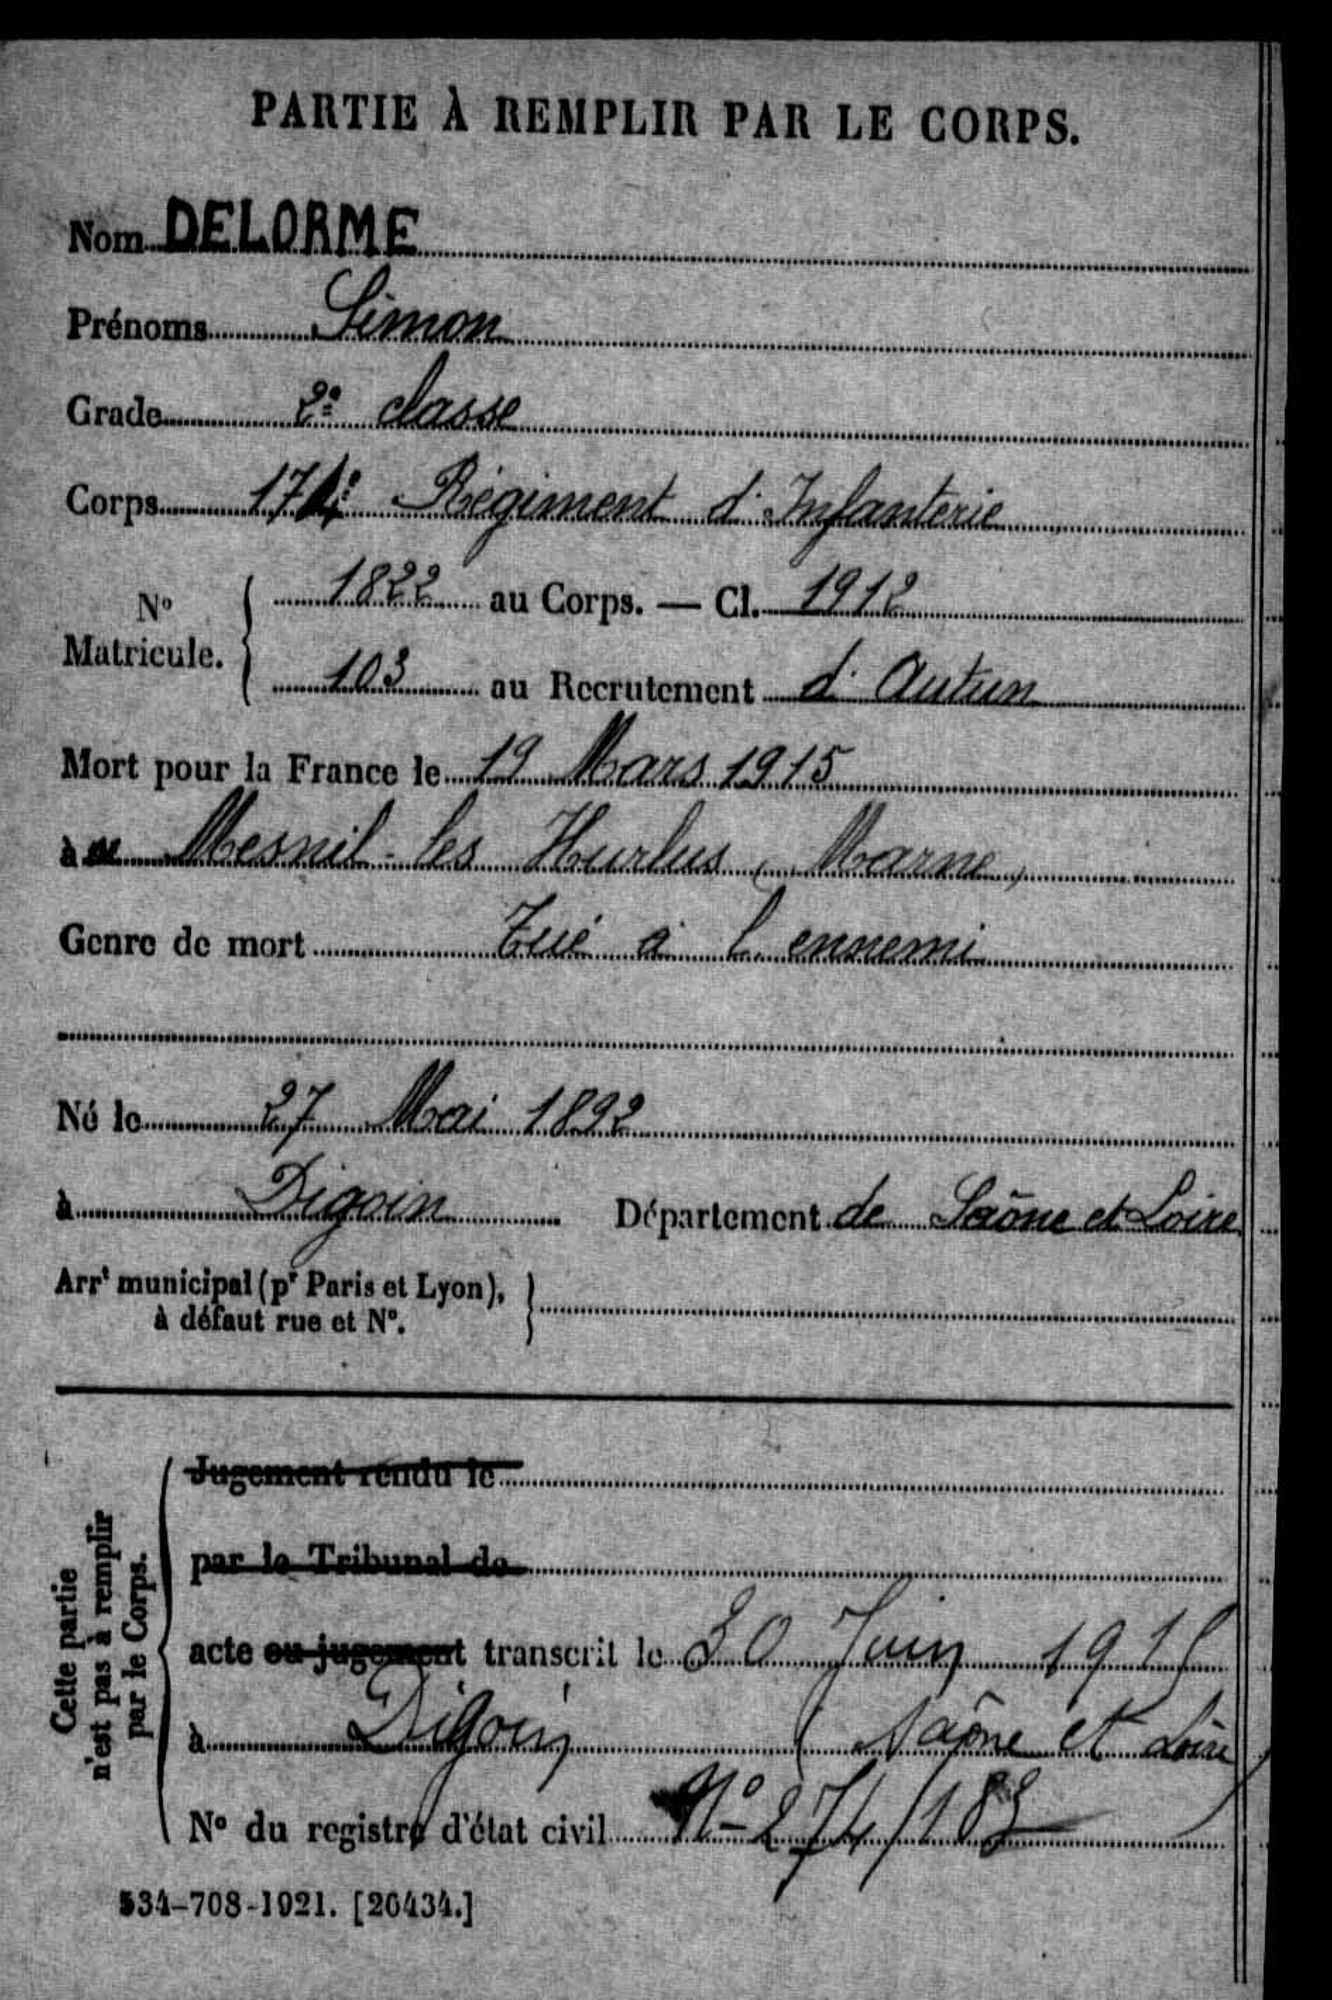 PARTIE À REMPLIR PAR LE CORPS.
Nom DELORME
Prénoms Simon
Grade 2e classe
Corps 174e Régiment d'Infanterie
No Matricule. 1822 au Corps. — Cl. 1912
103 au Recrutement d'Autun
Mort pour la France le 19 Mars 1915
à Mesnil-les Hurlus (Marne)
Genre de mort Tué à l'ennemi
Né le 27 Mai 1892
à Digoin Département de Saône et Loire
Arrt municipal (pr Paris et Lyon),
à défaut rue et No.
Cette partie
n'est pas à remplir
par le Corps.
Jugement rendu le
par le Tribunal de
acte ou jugement transcrit le 30 Juin 1915
à Digoin (Saône et Loire)
No du registre d'état civil No 274/183
534-708-1921. [26434.]